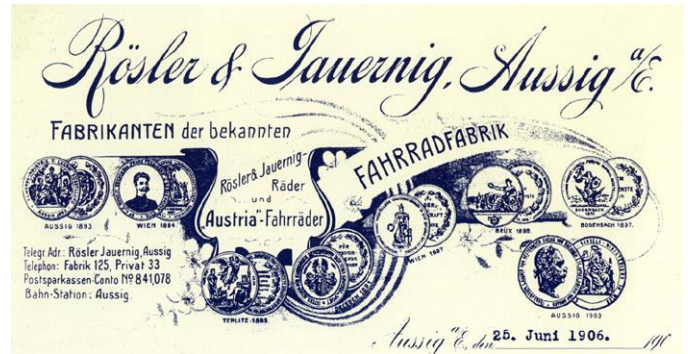 Rösler & Jauernig, Aussig a/E.
FABRIKANTEN der bekannten
Rösler & Jauernig-
Räder
und
„Austria"-Fahrräder
FAHRRADFABRIK
AUSSIG 1893
WIEN 1894.
TEPLITZ
WIEN 1897
BRÜX
BODENBACH 1897.
AUSSIG 1903
Telegr. Adr.: Rösler Jauernig, Aussig
Telephon: Fabrik 125, Privat 33
Postsparkassen-Conto Nº 841,078
Bahn-Station: Aussig.
Aussig a/E, den 25. Juni 1906. 190